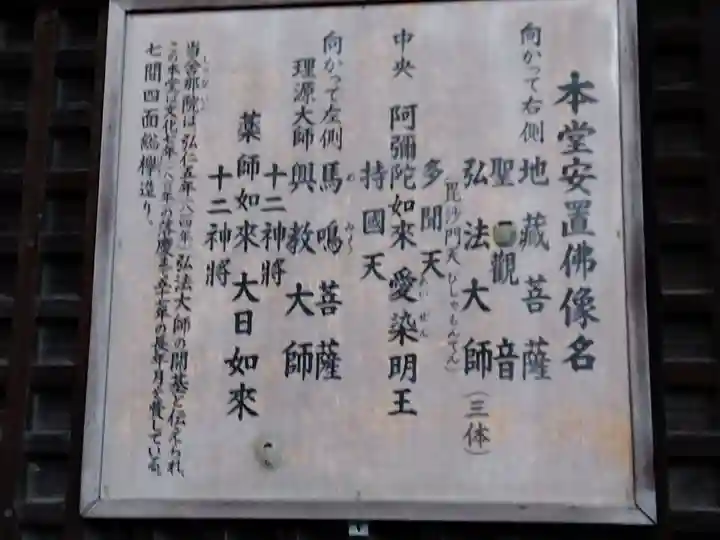 本堂安置佛像名
向かって右側 地藏菩薩
聖觀音
弘法大師(三体)
多聞天
(毘沙門天 びしゃもんてん)
中央 阿彌陀如來 愛染明王
あいぜん
持國天
向かって左側 馬鳴菩薩
めみょう
理源大師 興教大師
十二神將
藥師如來 大日如來
十二神將
当舍那院は弘仁五年(八一四年)弘法大師の開基と伝えられ、
この本堂は文化七年(一八一〇年)の
年の長年月を費している。
七間四面総欅造り。